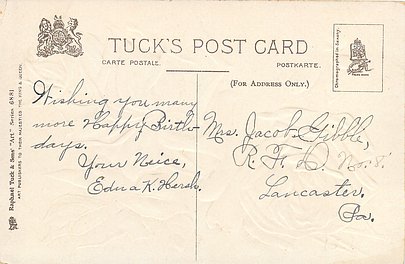 TUCK'S POST CARD
CARTE POSTALE.
POSTKARTE.
(FOR ADDRESS ONLY.)
Wishing you many
more Happy Birth
days.
Your Neice,
Edna K. Hersh.
Mrs. Jacob Gibble,
R. F. D. No. 8.
Lancaster.
Pa.
Raphael Tuck & Sons' "Art" Series 6881
ART PUBLISHERS TO THEIR MAJESTIES THE KING & QUEEN.
Chromographed in Saxony.